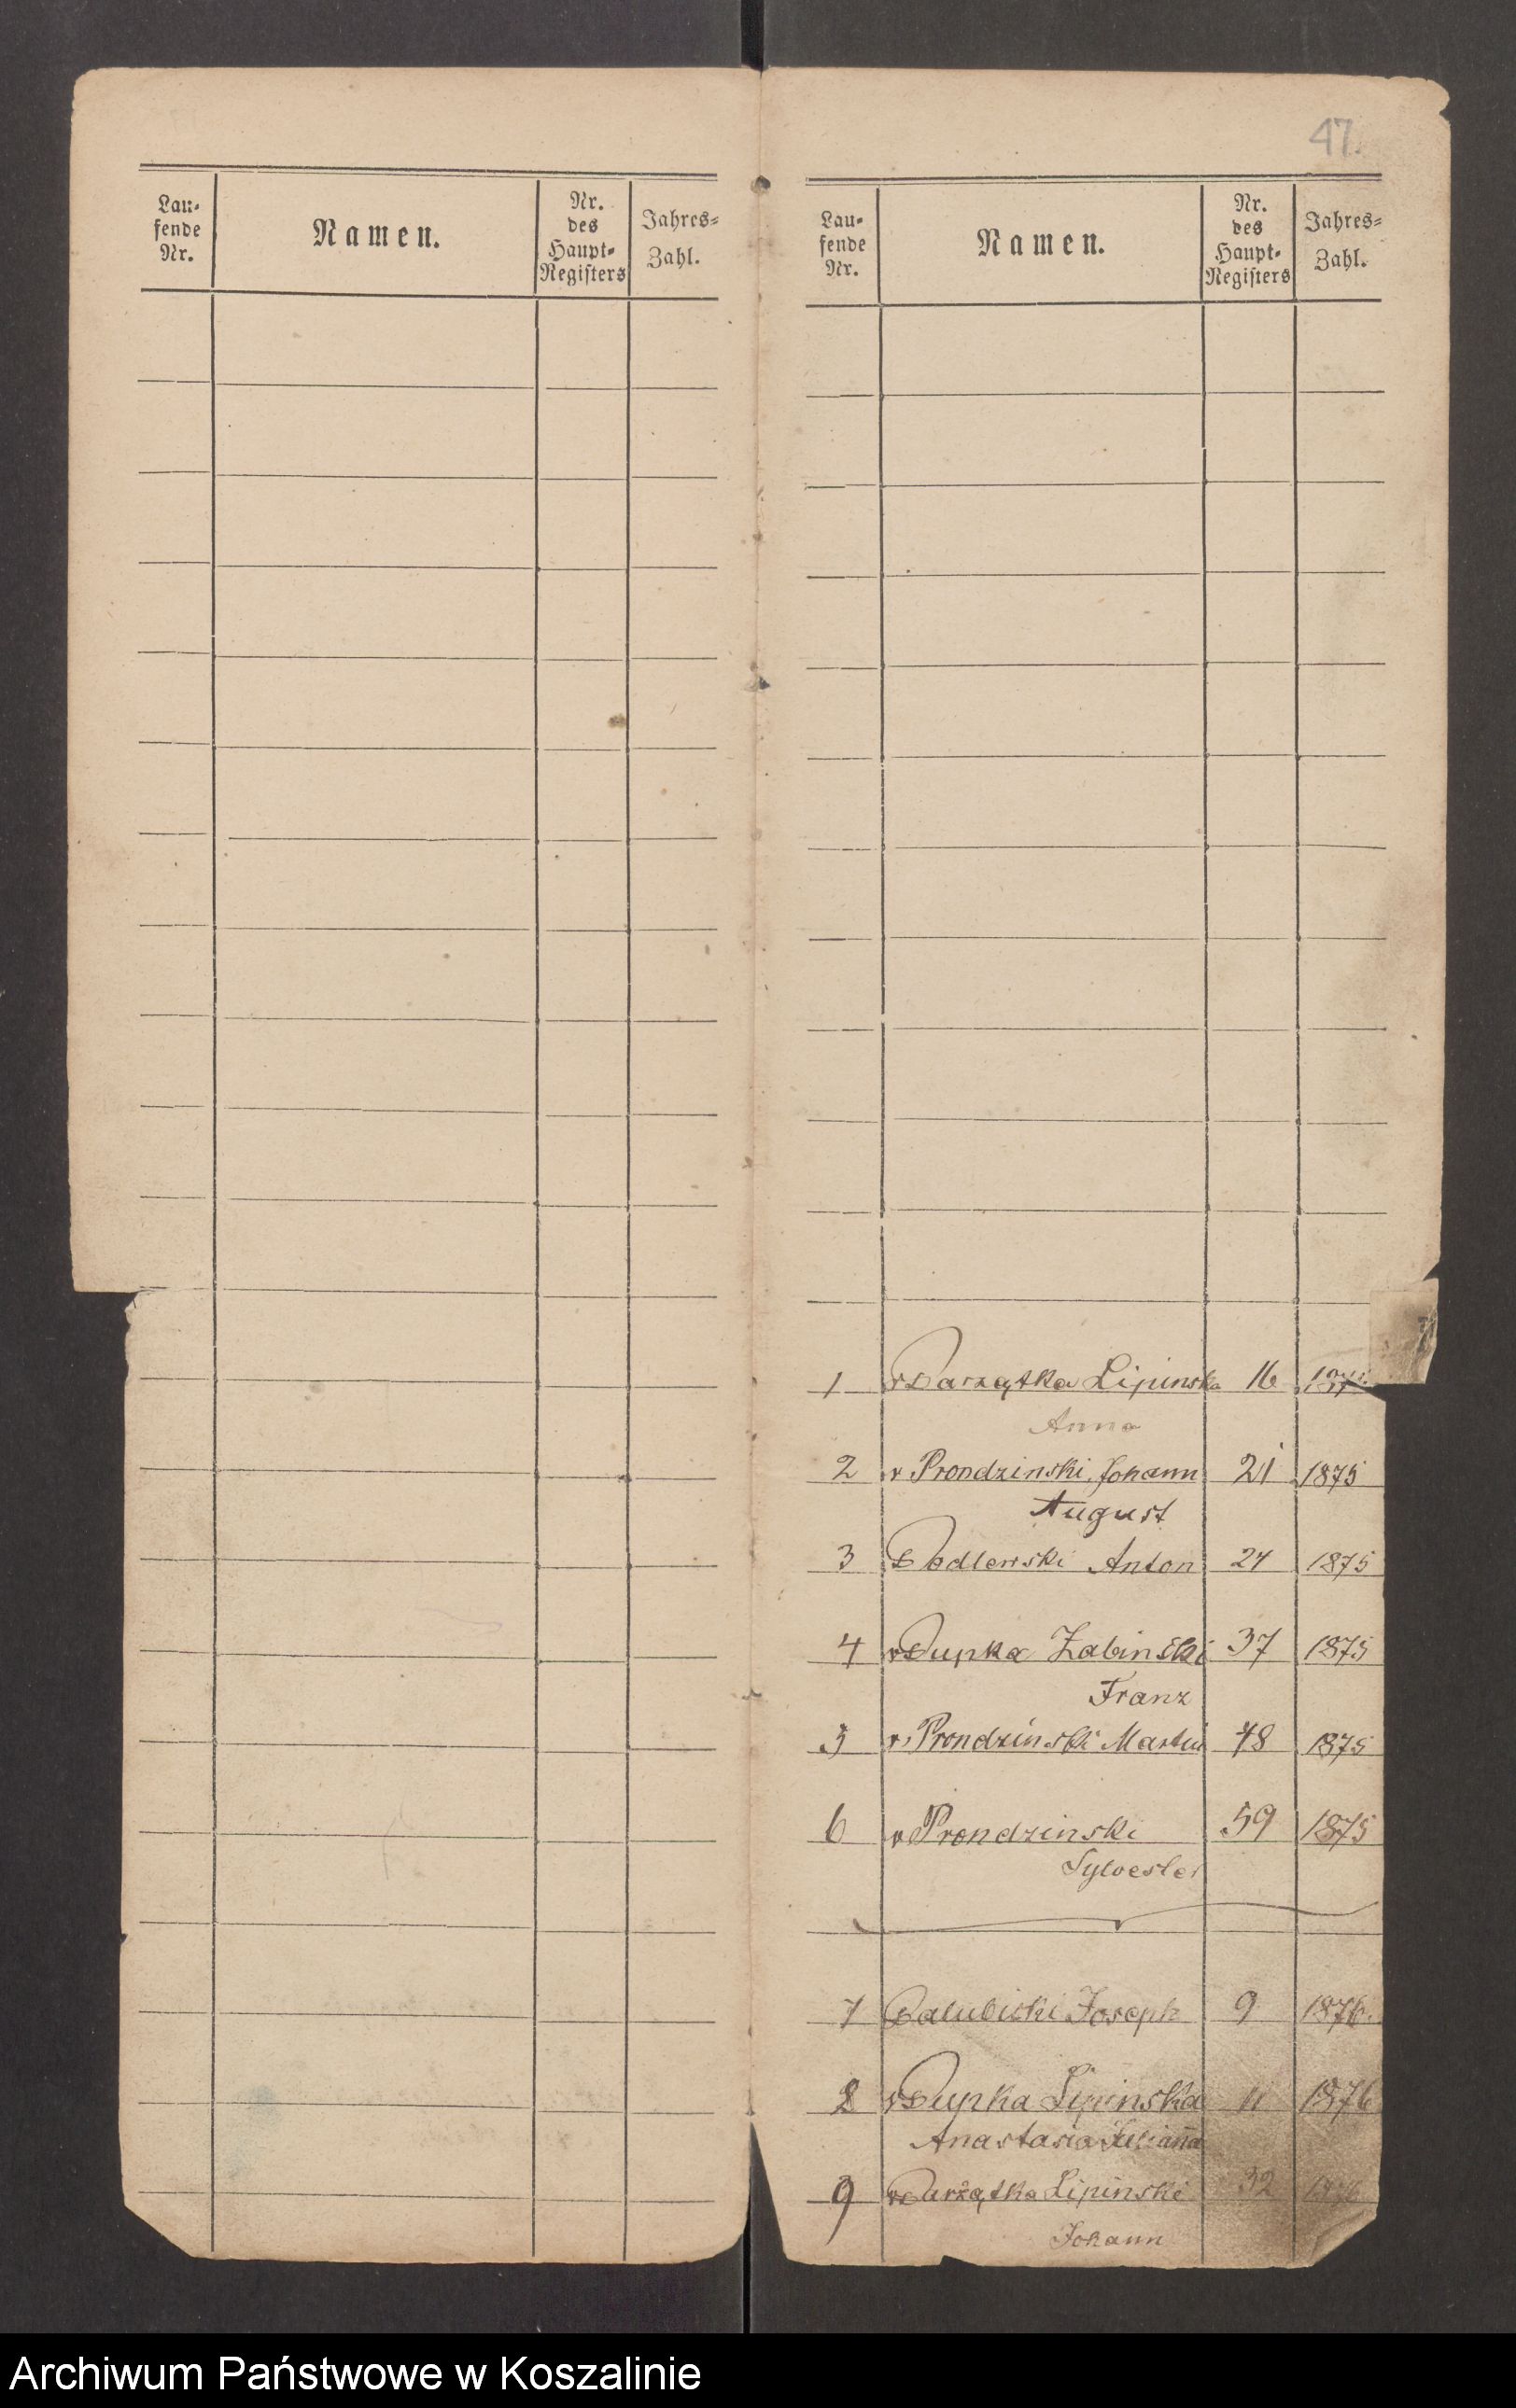 47.
Lau-
fende
Nr.
Namen.
Nr.
des
Haupt-
Registers
Jahres-
Zahl.
Lau-
fende
Nr.
Namen.
Nr.
des
Haupt-
Registers
Jahres-
Zahl.
1 Lipinska 16
Anna
2 v Prondzinski Johann 21 1875
August
3 Podlewski Anton 24 1875
4 v Pupka Zabinski 37 1875
Franz
5 v. Prondzinski Martin 48 1875
6 v Prondzinski 59 1875
Sylvester
7 Palubiski Joseph 9 1876.
8 v Pupka Lipinska 11 1876
Anastasia Juliaña
9 Lipinski 32 1876
Johann
Archiwum Państwowe w Koszalinie